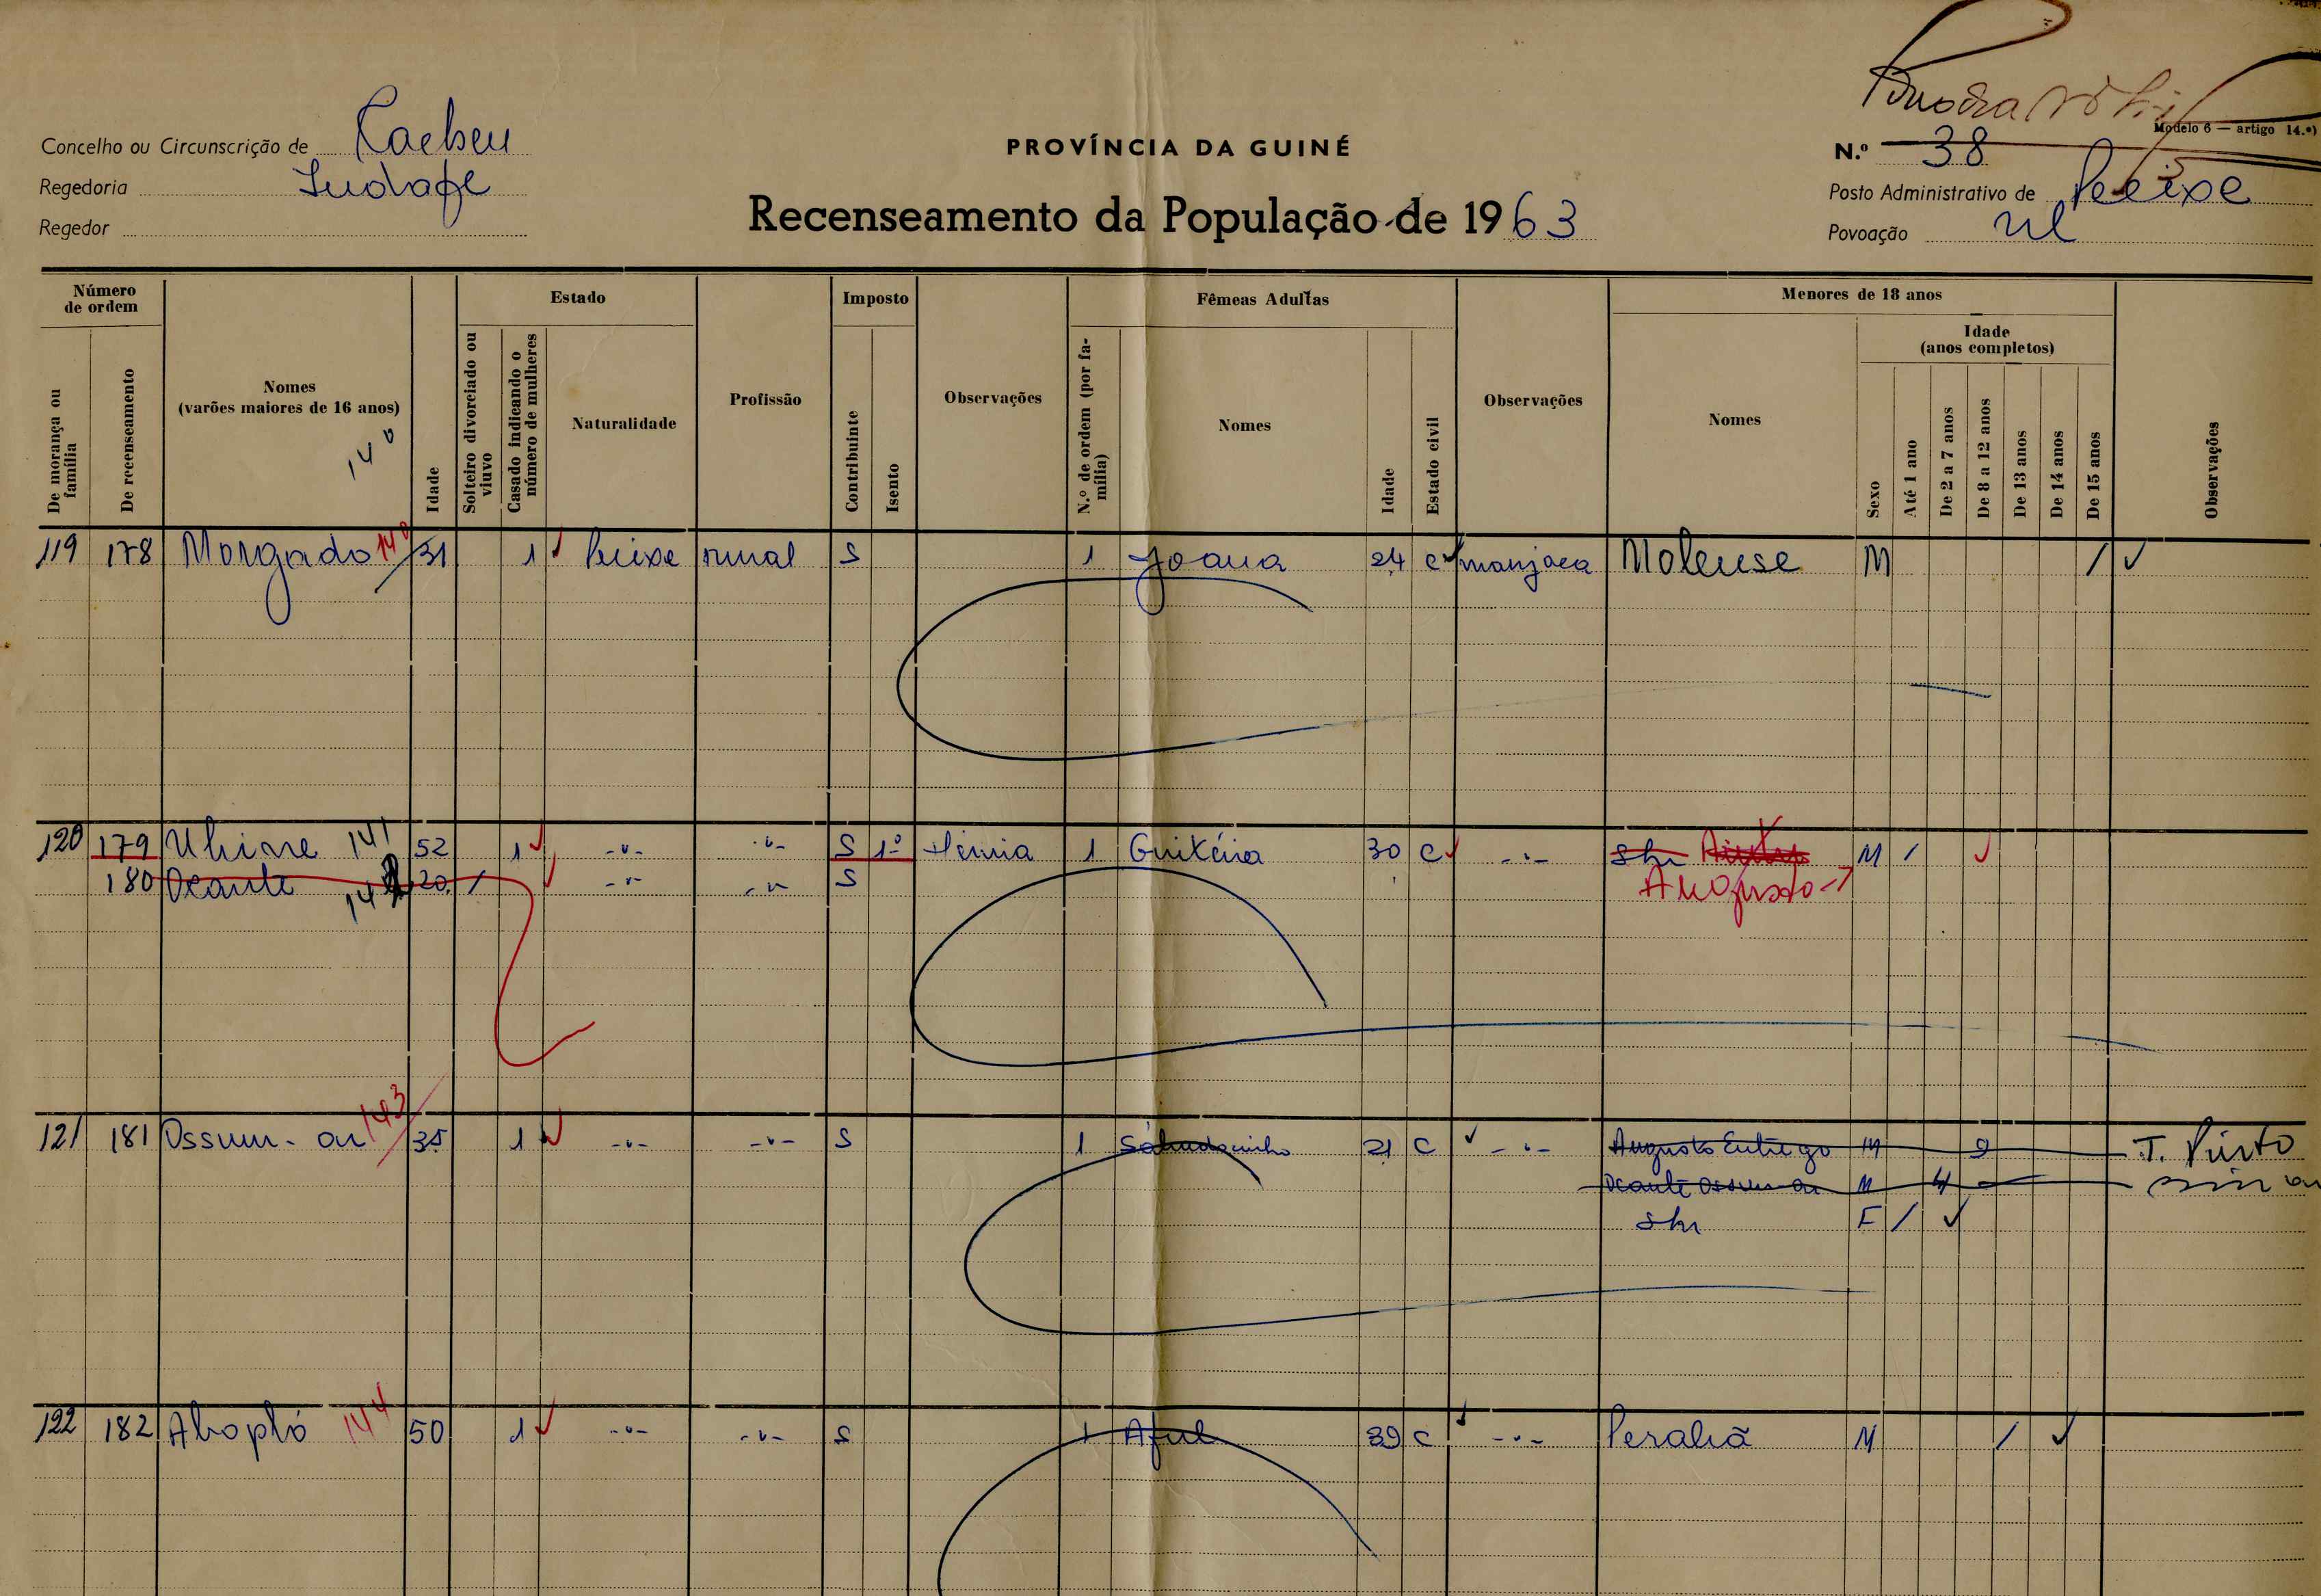 Modelo 6 — artigo 14.º)
PROVÍNCIA DA GUINÉ
Recenseamento da População de 1963
Concelho ou Circunscrição de Cacheu
Regedoria
Regedor
N.º 38
Posto Administrativo de Peeixe
Povoação
Número de ordem
Estado
Imposto
Fêmeas Adultas
Menores de 18 anos
Idade (anos completos)
De morança ou família
De recenseamento
Nomes (varões maiores de 16 anos)
140
Idade
Solteiro divorciado ou viuvo
Casado indicando o número de mulheres
Naturalidade
Profissão
Contribuinte
Isento
Observações
N.º de ordem (por família)
Nomes
Idade
Estado civil
Observações
Nomes
Sexo
Até 1 ano
De 2 a 7 anos
De 8 a 12 anos
De 13 anos
De 14 anos
De 15 anos
Observações
119 178 Morgado 140 31 1 Peixe rural S 1 Joana 24 C manjaca Molense M / ✓
120 179 Uhiane 141 52 1 -"- -"- S 1º Hérnia 1 30 C -"- Shr M /
180 Ocante 142 20 / -"- -"- S Augusto
121 181 Ossum-ou 143 35 1 -"- -"- S 1 21 C -"- Augusto Entrego M 9 T. Pinto
Ocante Ossum-ou M 4
Shr F / ✓
122 182 Ahopló 144 50 1 -"- -"- S 1 Aful 39 C -"- Perahã M / ✓